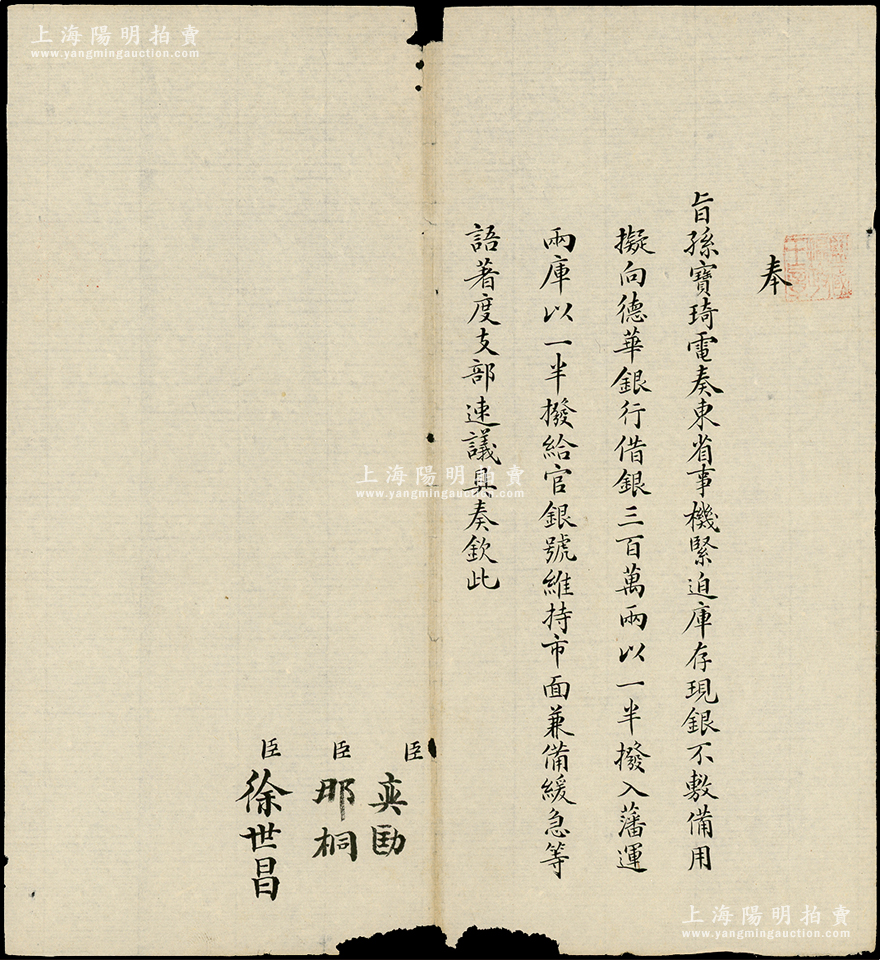 奉
旨孫寶琦電奏東省事機緊迫庫存現銀不敷備用
擬向德華銀行借銀三百萬兩以一半撥入藩運
兩庫以一半撥給官銀號維持市面兼備緩急等
語著度支部速議具奏欽此
臣奕劻
臣那桐
臣徐世昌
上海陽明拍賣
www.yangmingauction.com
上海陽明拍賣
www.yangmingauction.com
上海陽明拍賣
www.yangmingauction.com